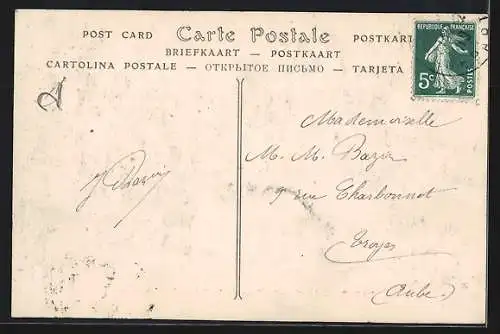 POST CARD Carte Postale POSTKART
BRIEFKAART — POSTKAART
CARTOLINA POSTALE — ОТКРЫТОЕ ПИСЬМО — TARJETA
REPUBLIQUE FRANÇAISE
5c
POSTES
Mademoiselle
M. M. Bazin
9 rue Charbonnet
Troyes
(Aube)